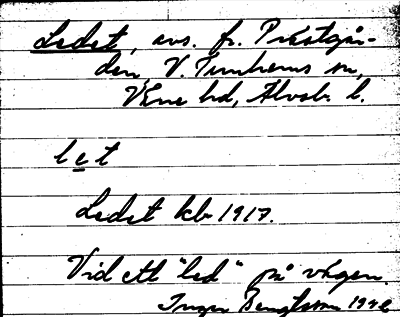 Ledet, avs. fr. Prästgår-
den, V. Tunhems sn,
Väne hd, Älvsb. l.
let
Ledet kb 1917.
Vid ett "led" på vägen.
Inger Bengtsson 1942